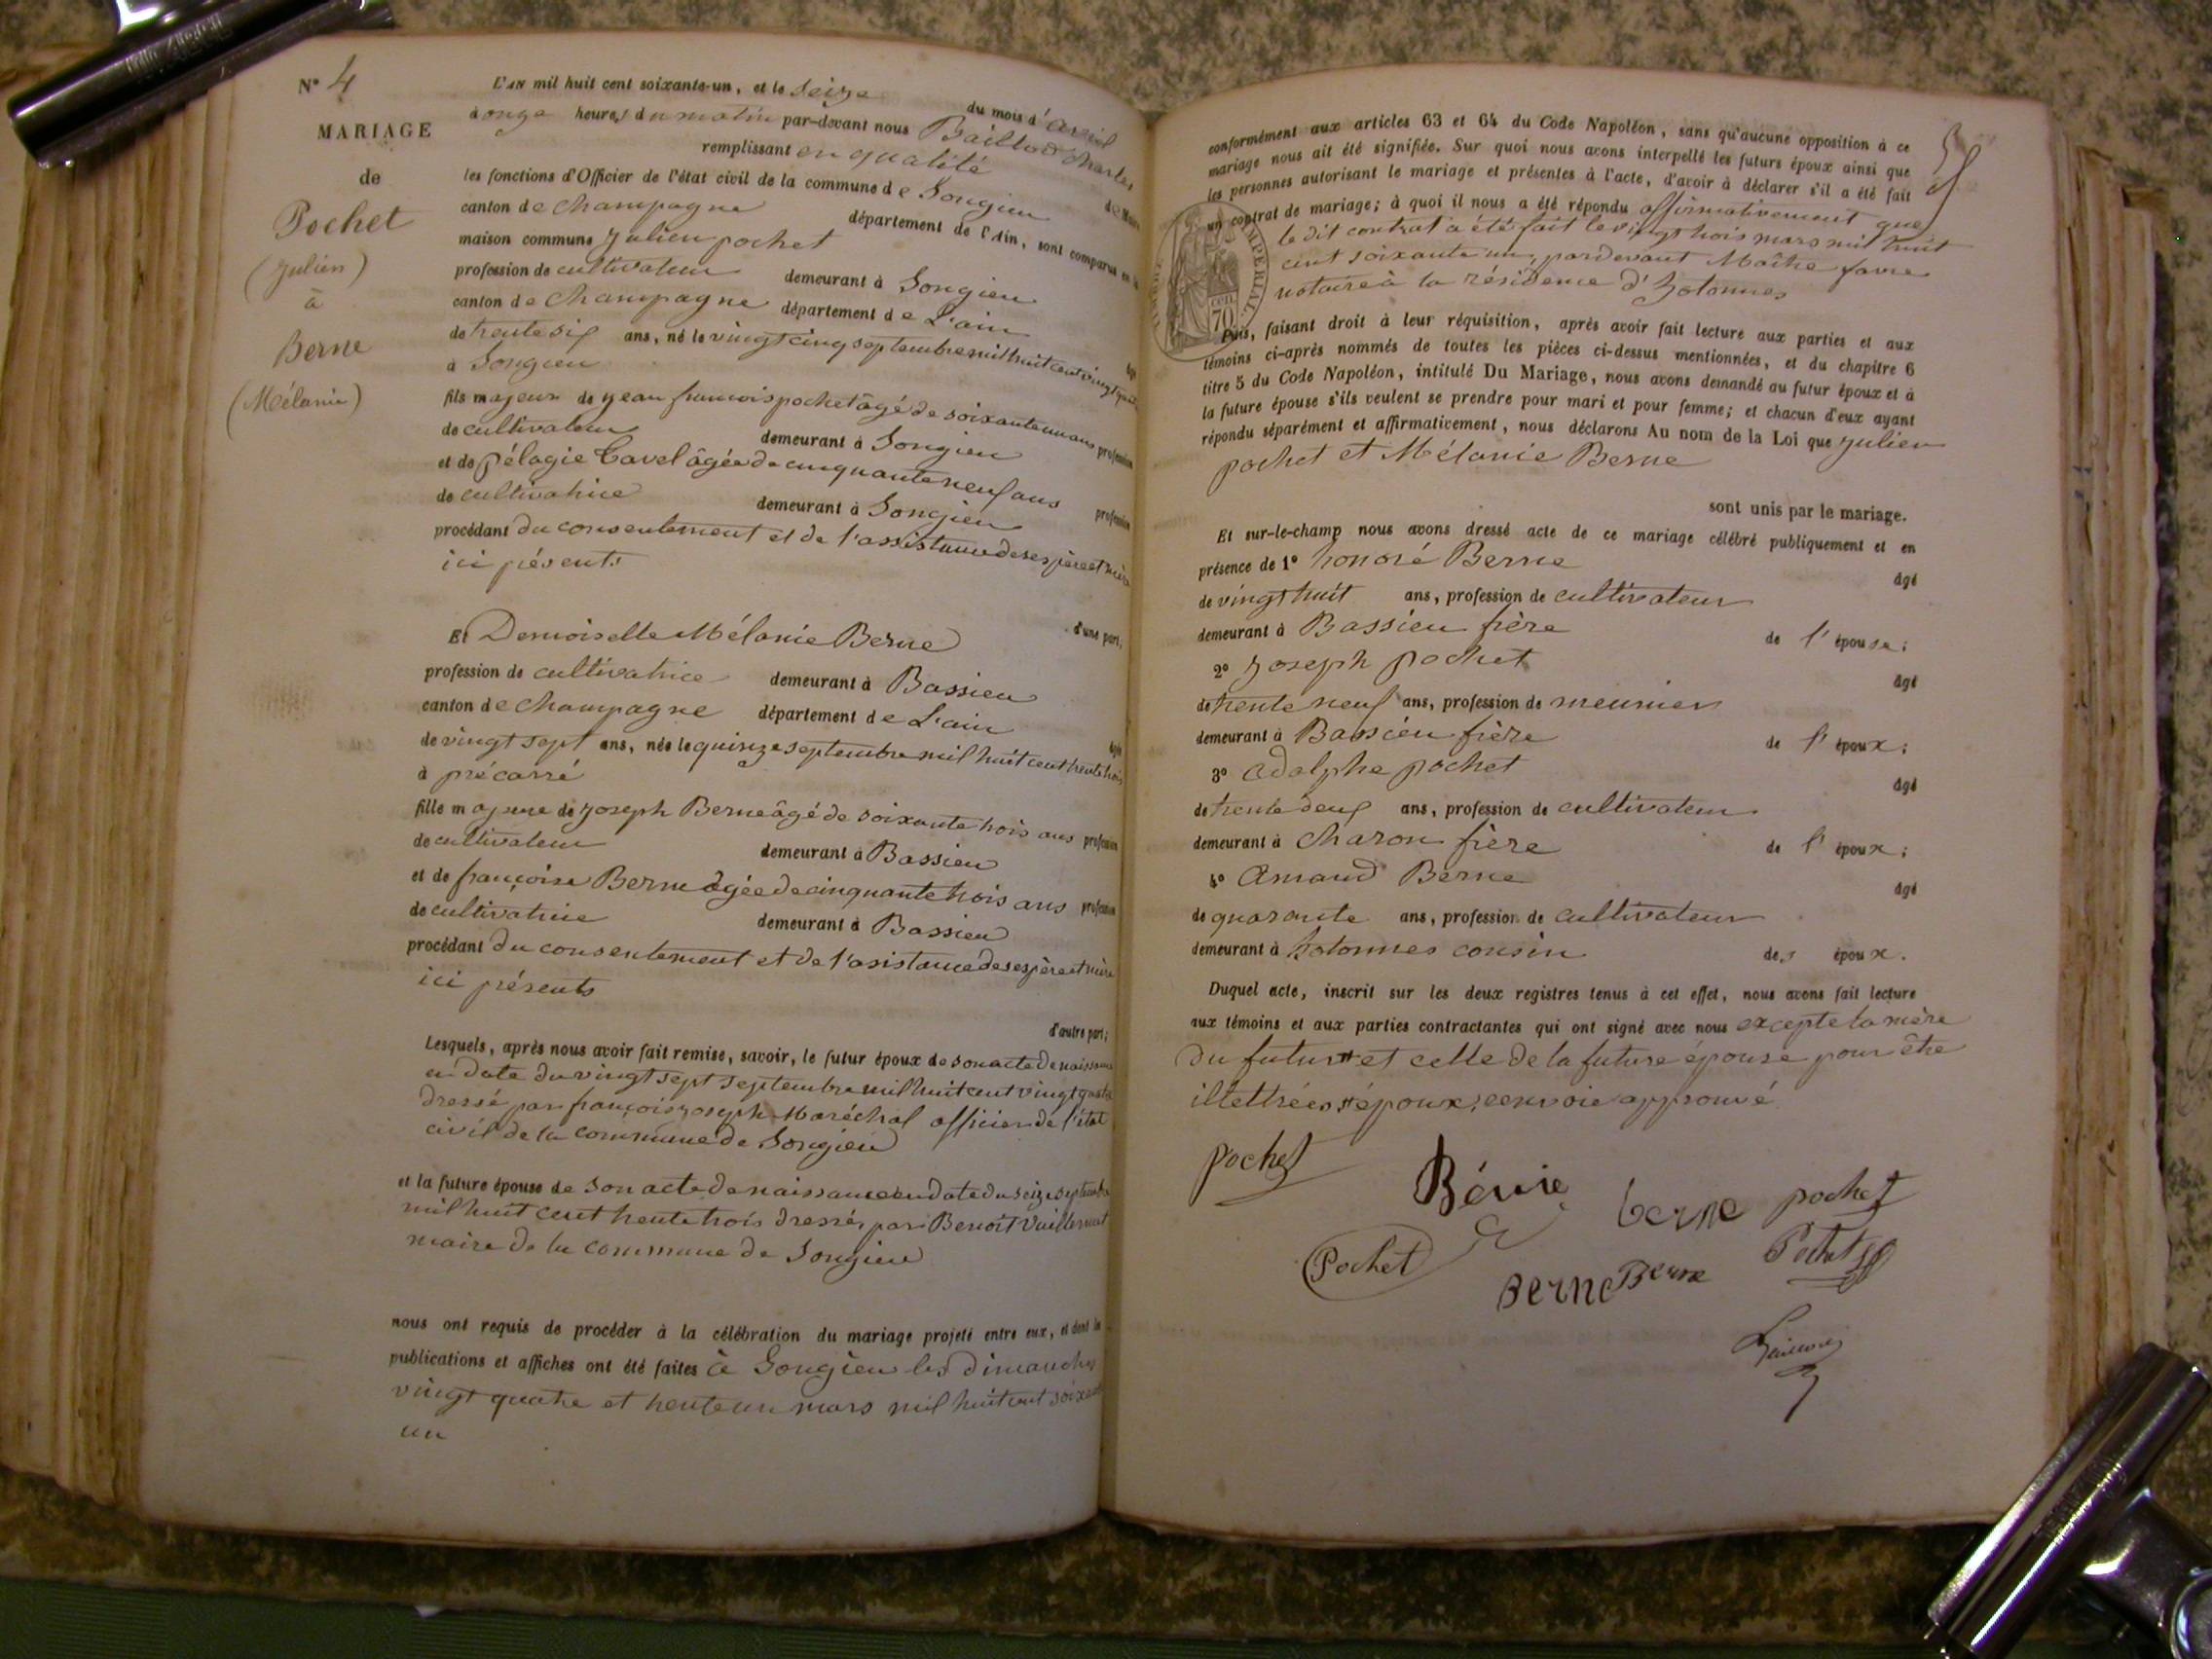 N° 4
MARIAGE
de
Pochet
(Julien)
à
Berne
(Mélanie)
L'AN mil huit cent soixante-un, et le seize du mois d'avril
à onze heures du matin par-devant nous Baillod Charles
remplissant en qualité de Maire
les fonctions d'Officier de l'état civil de la commune de Songieu
canton de Champagne département de l'Ain, sont comparus en la
maison commune Julien pochet
profession de cultivateur demeurant à Songieu
canton de Champagne département de L'ain âgé
de trente six ans, né le vingt cinq septembre mil huit cent vingt quatre
à Songieu
fils majeur de jean françois pochet âgé de soixante un ans profession
de cultivateur demeurant à Songieu
et de pélagie Cavel âgée de cinquante neuf ans profession
de cultivatrice demeurant à Songieu
procédant du consentement et de l'assistance de ses père et mère
ici présents
d'une part,
Et Demoiselle Mélanie Berne
profession de cultivatrice demeurant à Bassieu
canton de Champagne département de L'ain âgée
de vingt sept ans, née le quinze septembre mil huit cent trente trois
à précarré
fille majeure de joseph Berne âgé de soixante trois ans profession
de cultivateur demeurant à Bassieu
et de françoise Berne âgée de cinquante trois ans profession
de cultivatrice demeurant à Bassieu
procédant du consentement et de l'asistance de ses père et mère
ici présents
d'autre part;
Lesquels, après nous avoir fait remise, savoir, le futur époux de son acte de naissance
en date du vingt sept septembre mil huit cent vingt quatre
dressé par françois joseph Maréchal officier de l'état
civil de la commune de Songieu
et la future épouse de son acte de naissance en date du seize septembre
mil huit cent trente trois dressé par Benoit Vuillermet
maire de la commune de Songieu
nous ont requis de procéder à la célébration du mariage projeté entre eux, et dont les
publications et affiches ont été faites à Songieu les dimanches
vingt quatre et trente un mars mil huit cent soixante
un
conformément aux articles 63 et 64 du Code Napoléon, sans qu'aucune opposition à ce
mariage nous ait été signifiée. Sur quoi nous avons interpellé les futurs époux ainsi que
les personnes autorisant le mariage et présentes à l'acte, d'avoir à déclarer s'il a été fait
un contrat de mariage; à quoi il nous a été répondu affirmativement que
le dit contrat a été fait le vingt trois mars mil huit
cent soixante un, pardevant Maître favre
notaire à la résidence d'hotonnes
IMPERIAL
70 cen
Puis, faisant droit à leur réquisition, après avoir fait lecture aux parties et aux
témoins ci-après nommés de toutes les pièces ci-dessus mentionnées, et du chapitre 6
titre 5 du Code Napoléon, intitulé Du Mariage, nous avons demandé au futur époux et à
la future épouse s'ils veulent se prendre pour mari et pour femme; et chacun d'eux ayant
répondu séparément et affirmativement, nous déclarons Au nom de la Loi que julien
pochet et Mélanie Berne
sont unis par le mariage.
Et sur-le-champ nous avons dressé acte de ce mariage célébré publiquement et en
présence de 1° honoré Berne âgé
de vingt huit ans, profession de cultivateur
demeurant à Bassieu frère de l'épouse;
2° Joseph pochet âgé
de trente neuf ans, profession de meunier
demeurant à Bassieu frère de l'époux;
3° adolphe pochet âgé
de trente deux ans, profession de cultivateur
demeurant à Charon frère de l'époux;
4° Amand Berne âgé
de quarante ans, profession de cultivateur
demeurant à hotonnes cousin des époux.
Duquel acte, inscrit sur les deux registres tenus à cet effet, nous avons fait lecture
aux témoins et aux parties contractantes qui ont signé avec nous excepté la mère
du futur # et celle de la future épouse pour être
illettrées # époux, renvoie approuvé
pochet
Bérne
berne
pochet
Pochet
Berne
Berne
Pochet